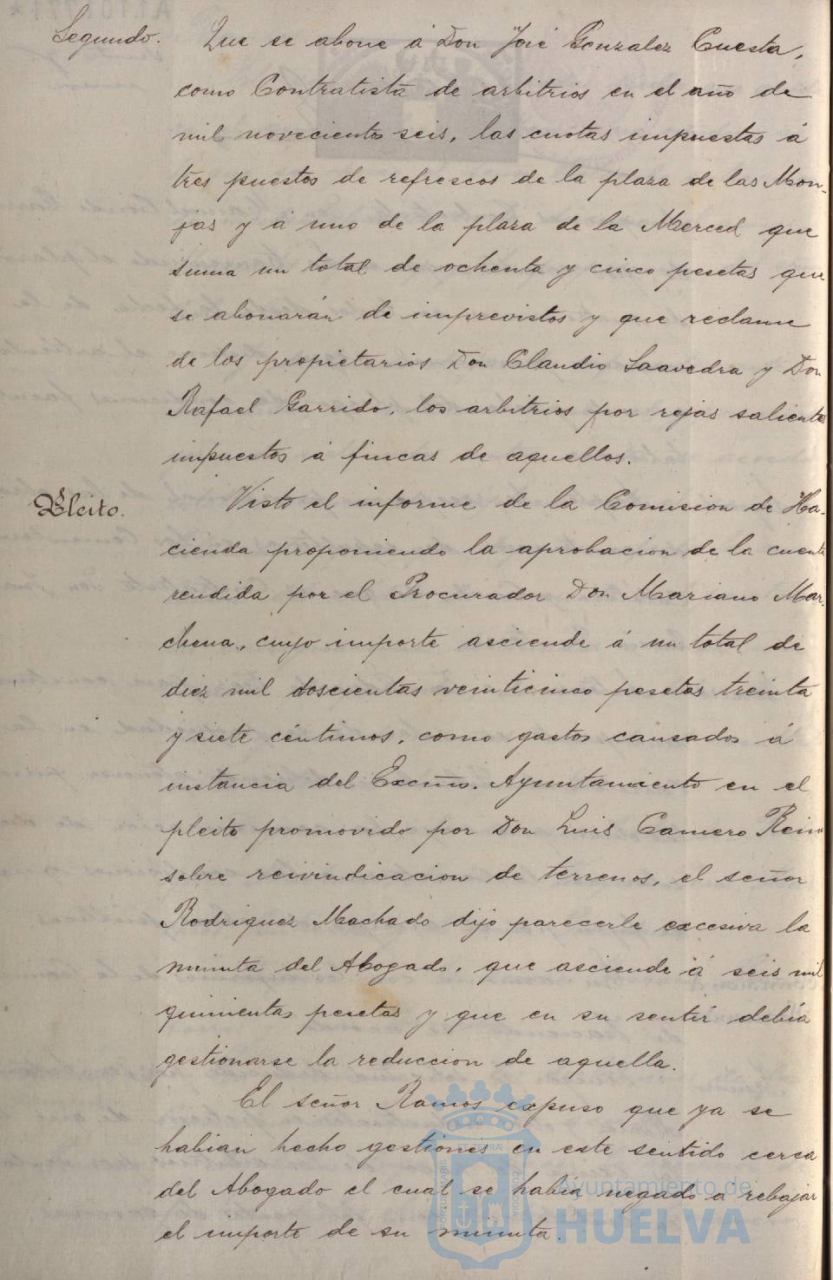 Segundo. Que se abone á Don José Gonzalez Cuesta,
como Contratista de arbitrios en el año de
mil novecientos seis, las cuotas impuestas á
tres puestos de refrescos de la plaza de las Mon-
jas y á uno de la plaza de la Merced que
suma un total de ochenta y cinco pesetas que
se abonarán de imprevistos y que reclame
de los propietarios Don Claudio Saavedra y Don
Rafael Garrido, los arbitrios por rejas salientes
impuestos á fincas de aquellos.
Pleito. Visto el informe de la Comision de Ha-
cienda proponiendo la aprobacion de la cuenta
rendida por el Procurador Don Mariano Mar-
chena, cuyo importe asciende á un total de
diez mil doscientas veinticinco pesetas treinta
y siete céntimos, como gastos causados á
instancia del Excmo. Ayuntamiento en el
pleito promovido por Don Luis Camero
sobre reivindicacion de terrenos, el señor
Rodriguez Machado dijo parecerle excesiva la
minuta del Abogado, que asciende á seis mil
quinientas pesetas y que en su sentir debía
gestionarse la reduccion de aquella.
El señor Ramos expuso que ya se
habian hecho gestiones en este sentido cerca
del Abogado el cual se había negado a rebajar
el importe de su minuta.
Ayuntamiento de
HUELVA